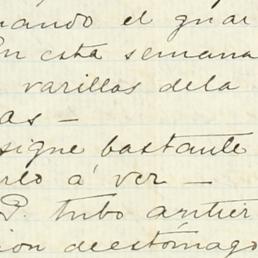 uando el guar
En esta semana
varillas dela
as —
sigue bastante
rlo á ver —
P. tubo antier
ion deestómago